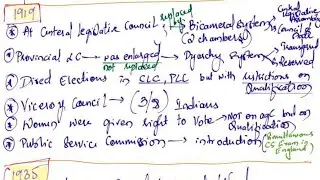 1919
At Central legislative Council replaced by Bicameral System (2 chambers) Central legislative Council of State
Provincial LC was enlarged not replaced Dyarchy System Transferred Reserved
Direct Elections in CLC, PLC but with restrictions on Qualification
Viceroy Council (3/8) Indians
Women were given right to Vote Not on age but on Qualification
Public Service Commission introduction (Simultaneous CS Exam in England)
1935